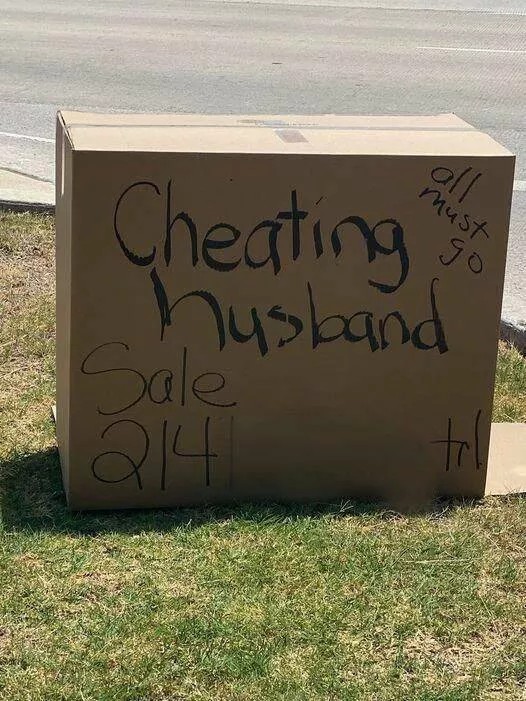 Cheating
all
must
go
husband
Sale
214
trl